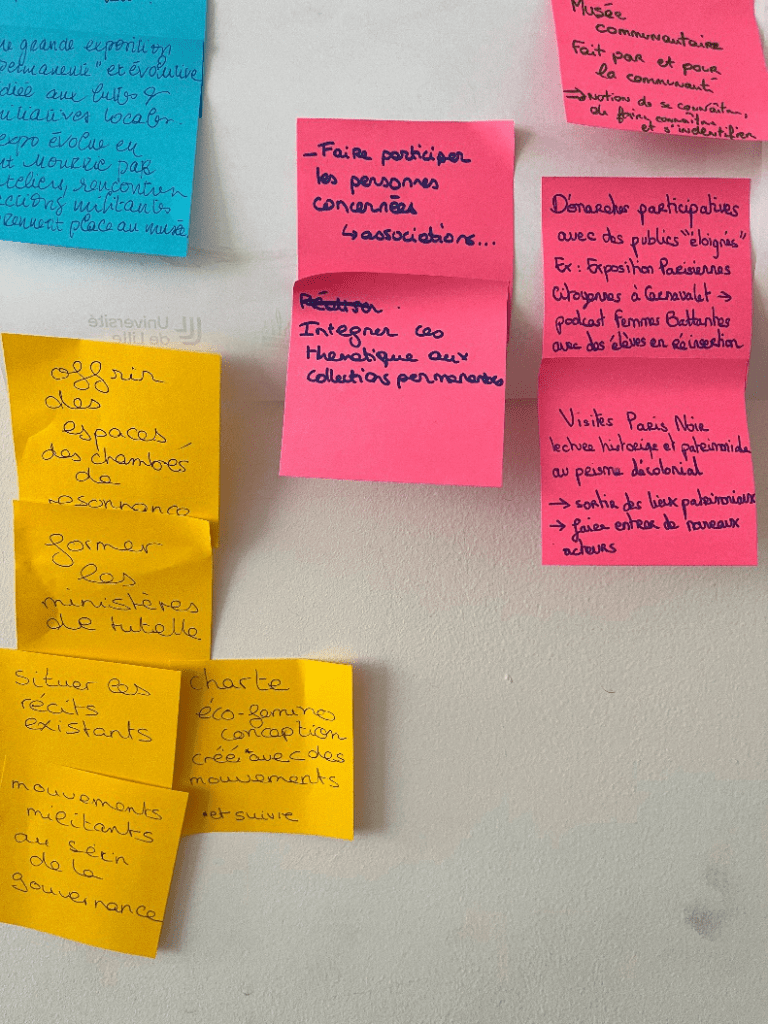 ne grande exposition
permanente" et évolutive
diée aux luttes &
nitiatives locales.
expo évolue en
nt nourrie par
ateliers, rencontres
actions militantes
prennent place au musée
Musée
communautaire
Fait par et pour
la communauté
→ Notion de se connaître,
de faire connaître
et s'indentifier
- Faire participer
les personnes
concernées
↳ associations...
Réaliser
Integrer ces
thématique aux
collections permanantes
Démarches participatives
avec des publics "éloignés"
Ex : Exposition Parisiennes
Citoyennes à Carnavalet →
podcast Femmes Battantes
avec des élèves en réinsertion
Visites Paris Noir
lecture historique et patrimoniale
au prisme décolonial
→ sortir des lieux patrimoniaux
→ faire entrer de nouveaux
acteurs
Université
de Lille
offrir
des
espaces
des chambres
de
resonnance
former
les
ministères
de tutelle
situer les
récits
existants
charte
éco-femines
conception
créé avec des
mouvements
• et suivie
mouvements
militants
au sein
de la
gouvernance